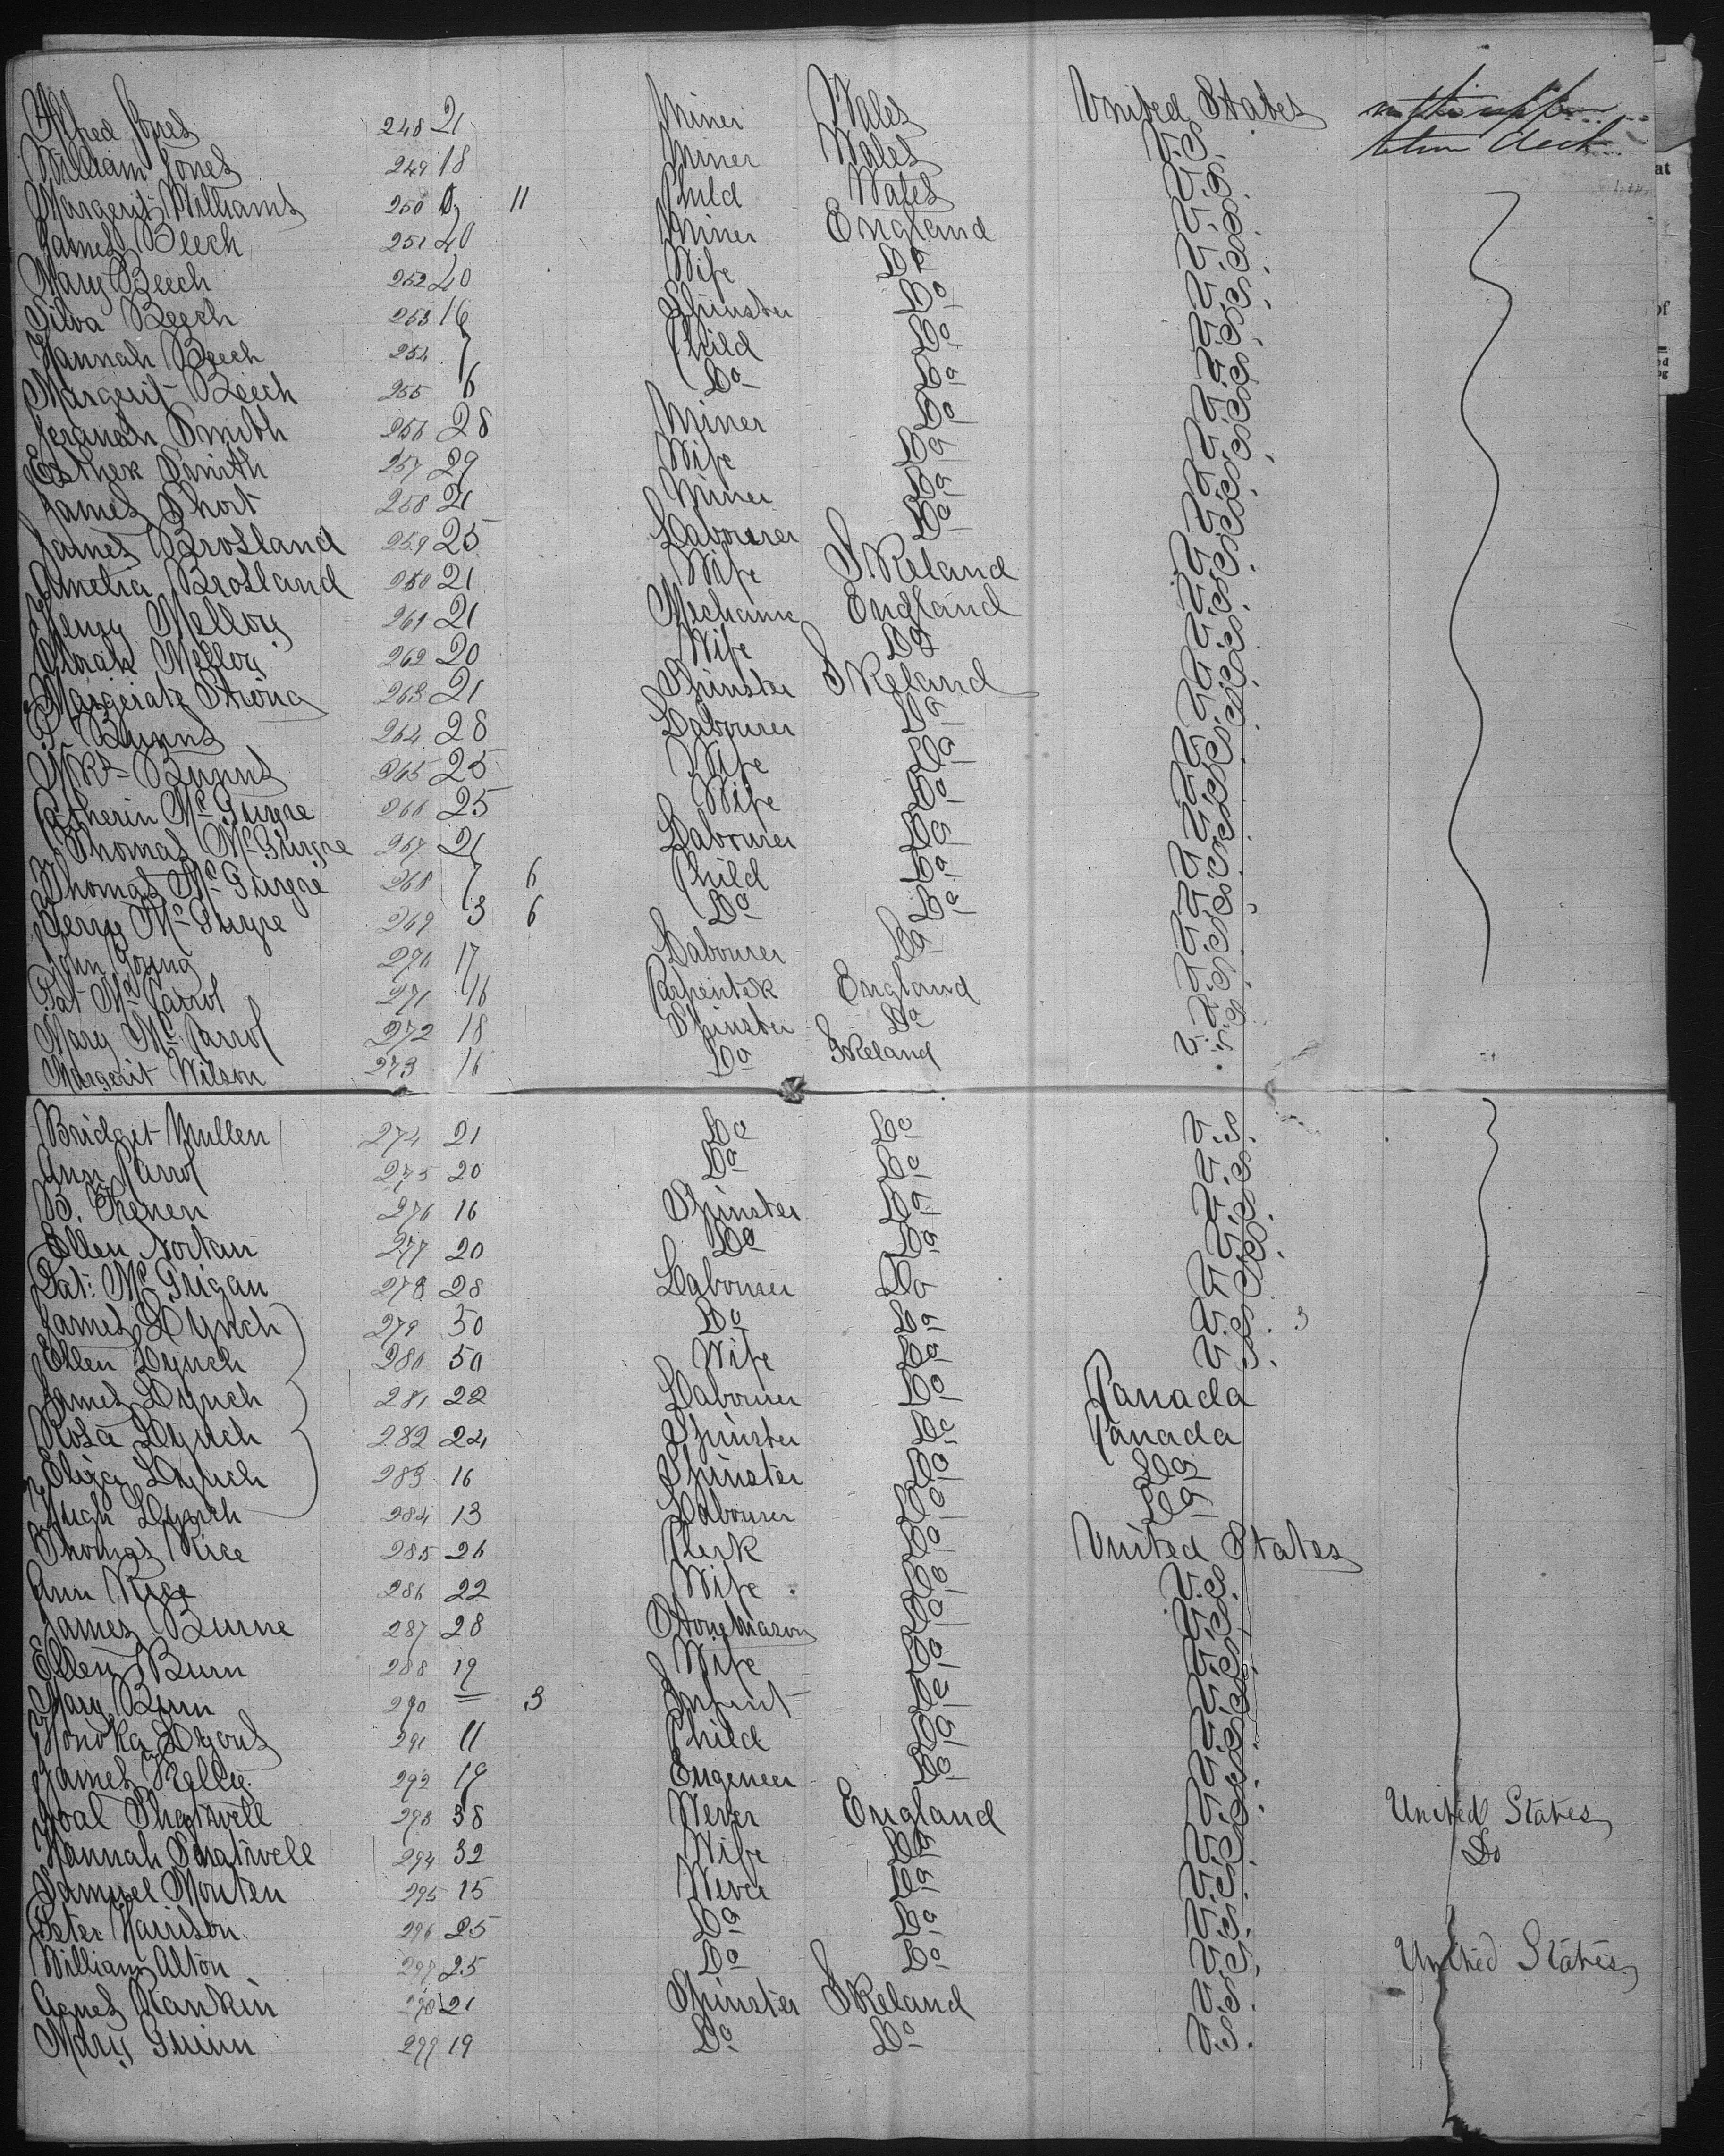 Alfred Jones 248 21 Miner Wales United States
William Jones 249 18 Miner Wales U.S.
Margerit Williams 250 11 Child Wales U.S.
James Beech 251 40 Miner England U.S.
Mary Beech 252 40 Wife Do U.S.
Silva Beech 253 16 Spinster Do U.S.
Hannah Beech 254 7 Child Do U.S.
Margerit Beech 255 6 Do Do U.S.
Smith 256 28 Miner Do U.S.
Esther Smith 257 29 Wife Do U.S.
James Short 258 21 Miner Do U.S.
James Brosland 259 25 Labourer Do U.S.
Amelia Brosland 21 Wife IReland U.S.
Henry Mellory 261 21 Mechanic England U.S.
Mellory 262 20 Wife Do U.S.
Margerate Strong 263 21 Spinster IReland U.S.
P. Bunns 264 28 Labourer Do U.S.
Bunns 265 25 Wife Do U.S.
Catherin Mc Guyre 266 25 Wife Do U.S.
Thomas Mc Guyre 267 21 Labourer Do U.S.
Thomas Mc Guyre 268 7 6 Child Do U.S.
Mc Guyre 269 3 6 Do Do U.S.
John Young 270 17 Labourer Do U.S.
Pat Mc Carrol 271 16 Carpenter England U.S.
Mary Mc Carrol 272 18 Spinster Do U.S.
Margerit Wilson 273 16 Do IReland U.S.
Bridget Mullen 274 21 Do Do U.S.
Ann Carrol 275 20 Do Do U.S.
B. 276 16 Spinster Do U.S.
Ellen Nortan 277 20 Do Do U.S.
Pat: Mc Grigan 278 28 Labourer Do U.S.
James Lynch 279 50 Do Do U.S. 3
Ellen Lynch 280 50 Wife Do U.S.
James Lynch 281 22 Labourer Do Canada
Rosa Lynch 282 24 Spinster Do Canada
Eliza Lynch 283 16 Spinster Do Do
Hugh Lynch 284 13 Labourer Do Do
Thomas Rice 285 26 Clerk Do United States
Ann Rice 286 22 Wife Do U.S.
James Burne 287 28 Stone Mason Do U.S.
Ellen Burn 288 19 Wife Do U.S.
Mary Burn 290 = 3 Infant Do U.S.
Honora Lyons 291 11 Child Do U.S.
James Kelly 292 19 Engeneer Do U.S.
Joal Shatwell 293 38 Wever England U.S. United States
Hannah Shatwell 294 32 Wife Do U.S. Do
Samuel Mouten 295 15 Wever Do U.S.
Peter Harrison 296 25 Do Do U.S.
William Alton 297 25 Do Do U.S. United States
Agnes Rankin 298 21 Spinster IReland U.S.
Mary Guinn 299 19 Do Do U.S.